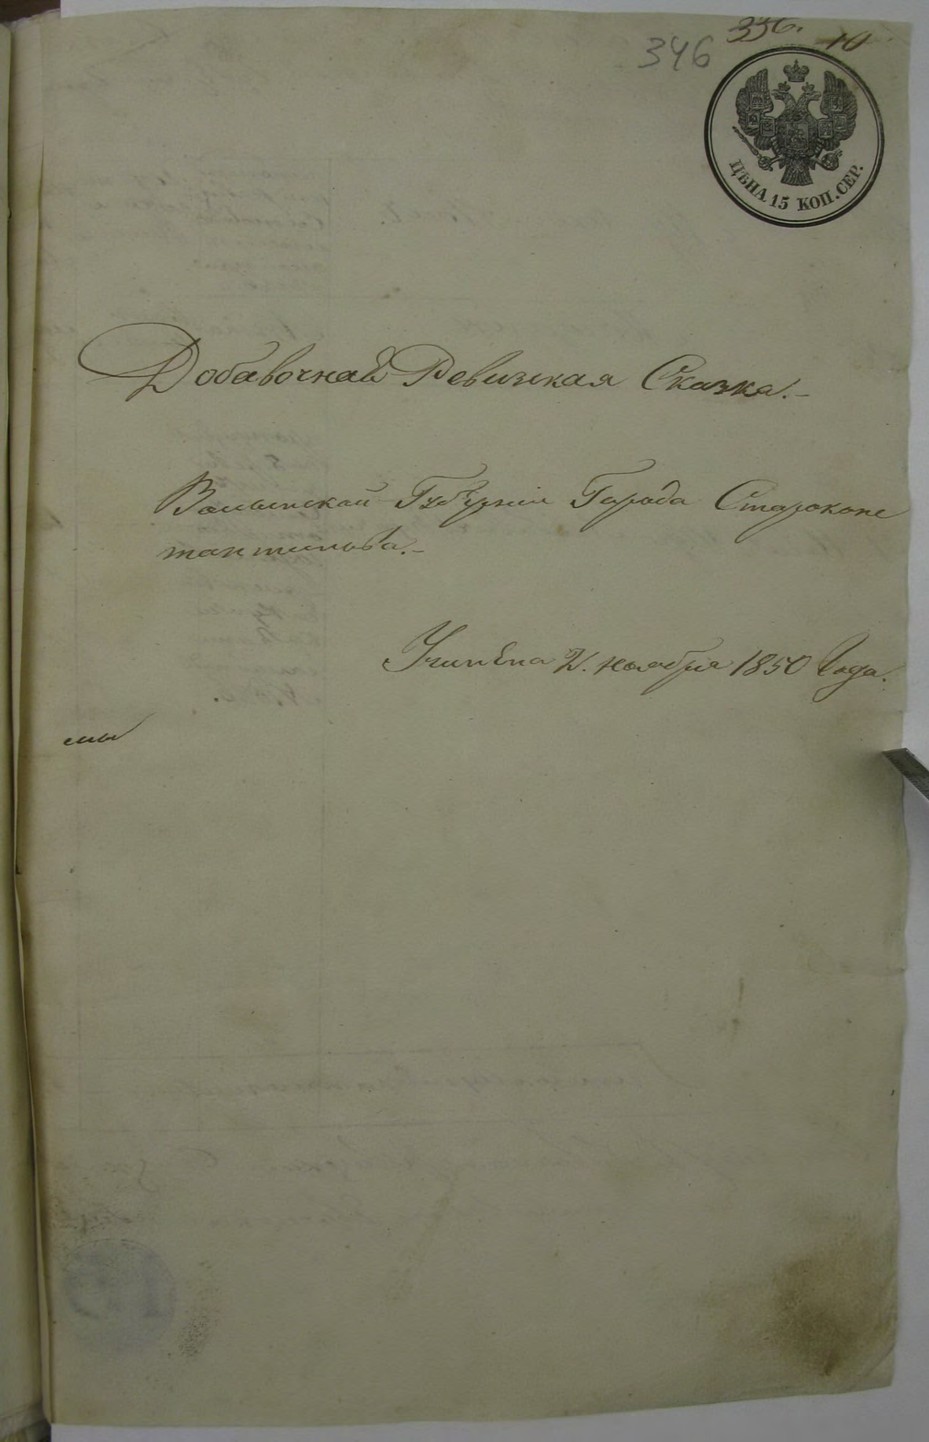 346 336. 10
ЦѢНА 15 КОП. СЕР.
Добавочная Ревизская Сказка.
Волынской Губерніи Города Староконс
тантинова.
Учинена 2. ноября 1850 Года.